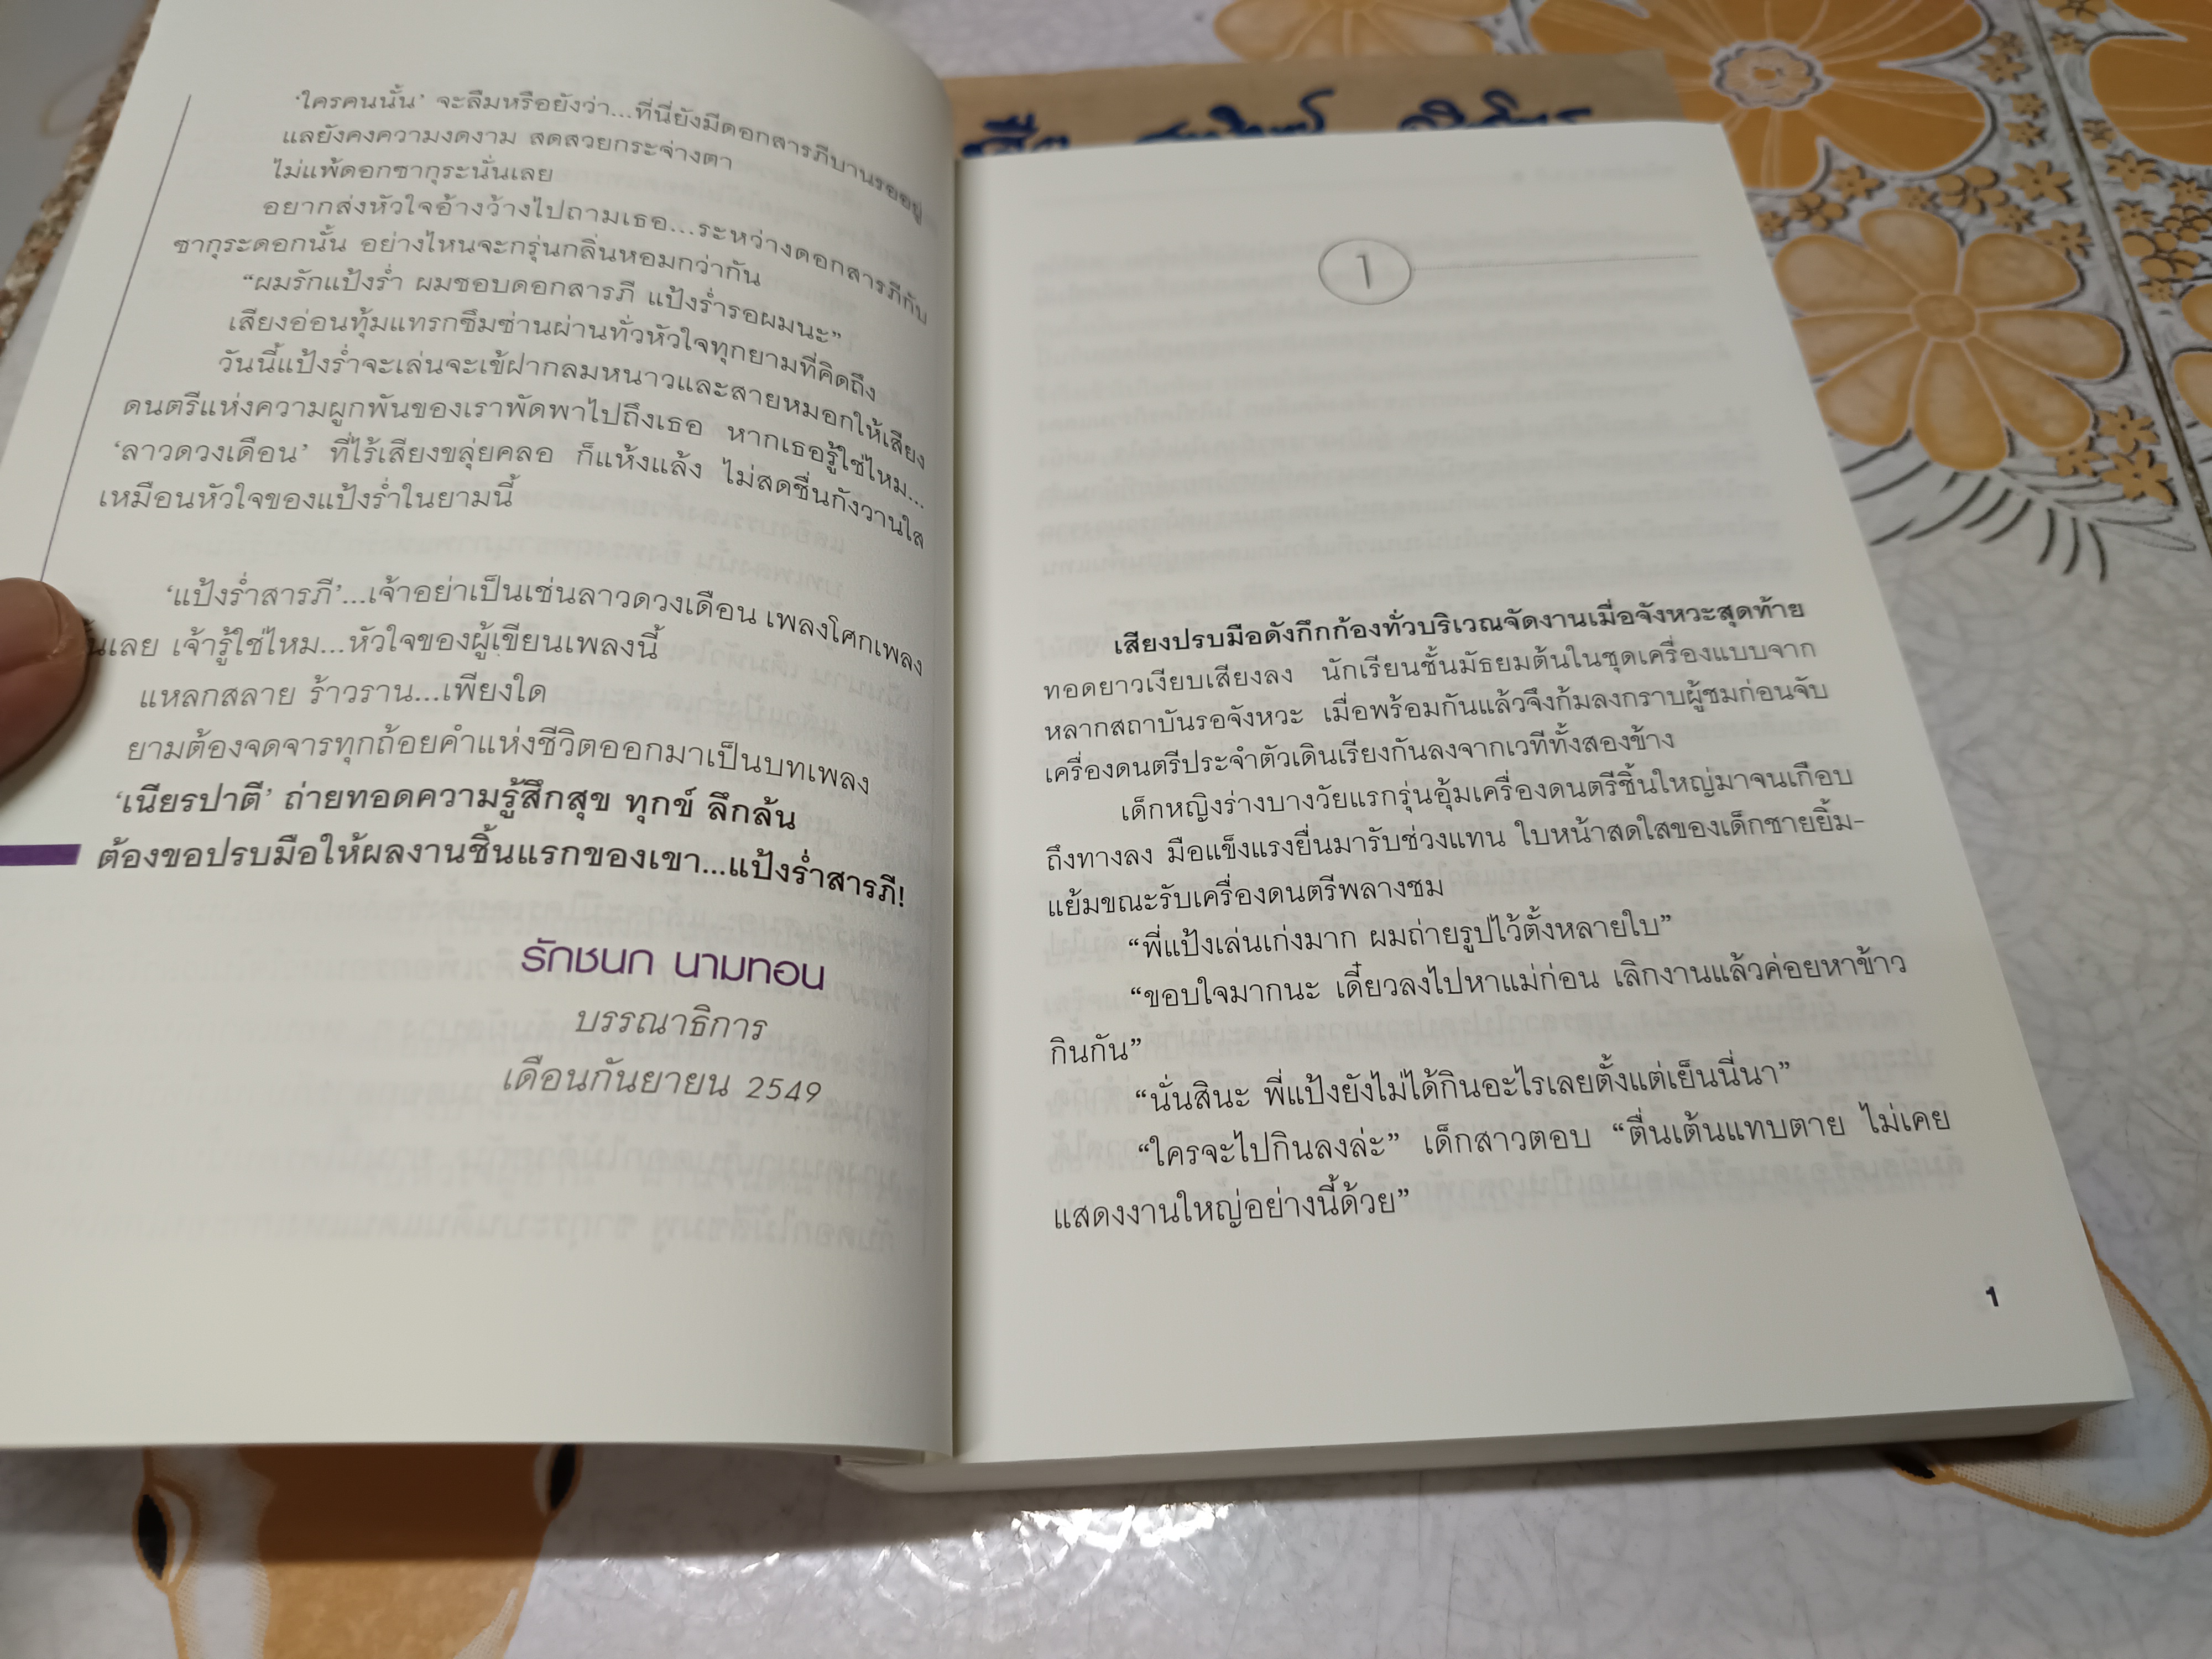 ‘ใครคนนั้น’ จะลืมหรือยังว่า...ที่นี่ยังมีดอกสารภีบานรออยู่
แลยังคงความงดงาม สดสวยกระจ่างตา
ไม่แพ้ดอกซากุระนั่นเลย
อยากส่งหัวใจอ้างว้างไปถามเธอ...ระหว่างดอกสารภีกับ
ซากุระดอกนั้น อย่างไหนจะกรุ่นกลิ่นหอมกว่ากัน
“ผมรักแป้งร่ำ ผมชอบดอกสารภี แป้งร่ำรอผมนะ”
เสียงอ่อนทุ้มแทรกซึมซ่านผ่านทั่วหัวใจทุกยามที่คิดถึง
วันนี้แป้งร่ำจะเล่นจะเข้ฝากลมหนาวและสายหมอกให้เสียง
ดนตรีแห่งความผูกพันของเราพัดพาไปถึงเธอ หากเธอรู้ใช่ไหม...
‘ลาวดวงเดือน’ ที่ไร้เสียงขลุ่ยคลอ ก็แห้งแล้ง ไม่สดชื่นกังวานใส
เหมือนหัวใจของแป้งร่ำในยามนี้
‘แป้งร่ำสารภี’...เจ้าอย่าเป็นเช่นลาวดวงเดือน เพลงโศกเพลง
นั้นเลย เจ้ารู้ใช่ไหม...หัวใจของผู้เขียนเพลงนี้
แหลกสลาย ร้าวราน...เพียงใด
ยามต้องจดจารทุกถ้อยคำแห่งชีวิตออกมาเป็นบทเพลง
‘เนียรปาตี’ ถ่ายทอดความรู้สึกสุข ทุกข์ ลึกล้น
ต้องขอปรบมือให้ผลงานชิ้นแรกของเขา...แป้งร่ำสารภี!
รักชนก นามทอน
บรรณาธิการ
เดือนกันยายน 2549
1
เสียงปรบมือดังกึกก้องทั่วบริเวณจัดงานเมื่อจังหวะสุดท้าย
ทอดยาวเงียบเสียงลง นักเรียนชั้นมัธยมต้นในชุดเครื่องแบบจาก
หลากสถาบันรอจังหวะ เมื่อพร้อมกันแล้วจึงก้มลงกราบผู้ชมก่อนจับ
เครื่องดนตรีประจำตัวเดินเรียงกันลงจากเวทีทั้งสองข้าง
เด็กหญิงร่างบางวัยแรกรุ่นอุ้มเครื่องดนตรีชิ้นใหญ่มาจนเกือบ
ถึงทางลง มือแข็งแรงยื่นมารับช่วงแทน ใบหน้าสดใสของเด็กชายยิ้ม-
แย้มขณะรับเครื่องดนตรีพลางชม
“พี่แป้งเล่นเก่งมาก ผมถ่ายรูปไว้ตั้งหลายใบ”
“ขอบใจมากนะ เดี๋ยวลงไปหาแม่ก่อน เลิกงานแล้วค่อยหาข้าว
กินกัน”
“นั่นสินะ พี่แป้งยังไม่ได้กินอะไรเลยตั้งแต่เย็นนี่นา”
“ใครจะไปกินลงล่ะ” เด็กสาวตอบ “ตื่นเต้นแทบตาย ไม่เคย
แสดงงานใหญ่อย่างนี้ด้วย”
1